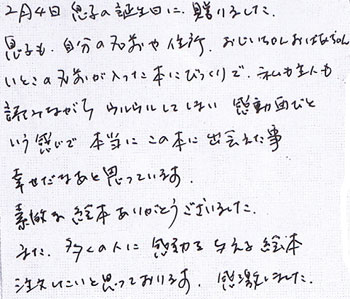 2月4日 息子の誕生日に、贈りました。
息子も、自分の名前や住所、おじいちゃんおばあちゃん
いとこの名前が入った本にびっくりで、私も主人も
読みながら ウルウルしてしまい 感動画だと
いう感じで 本当に この本に 出会えた事
幸せだなあと思っています。
素敵な 絵本ありがとうございました。
また、多くの人に 感動を 与える 絵本
注文したいと思っております。感激しました。